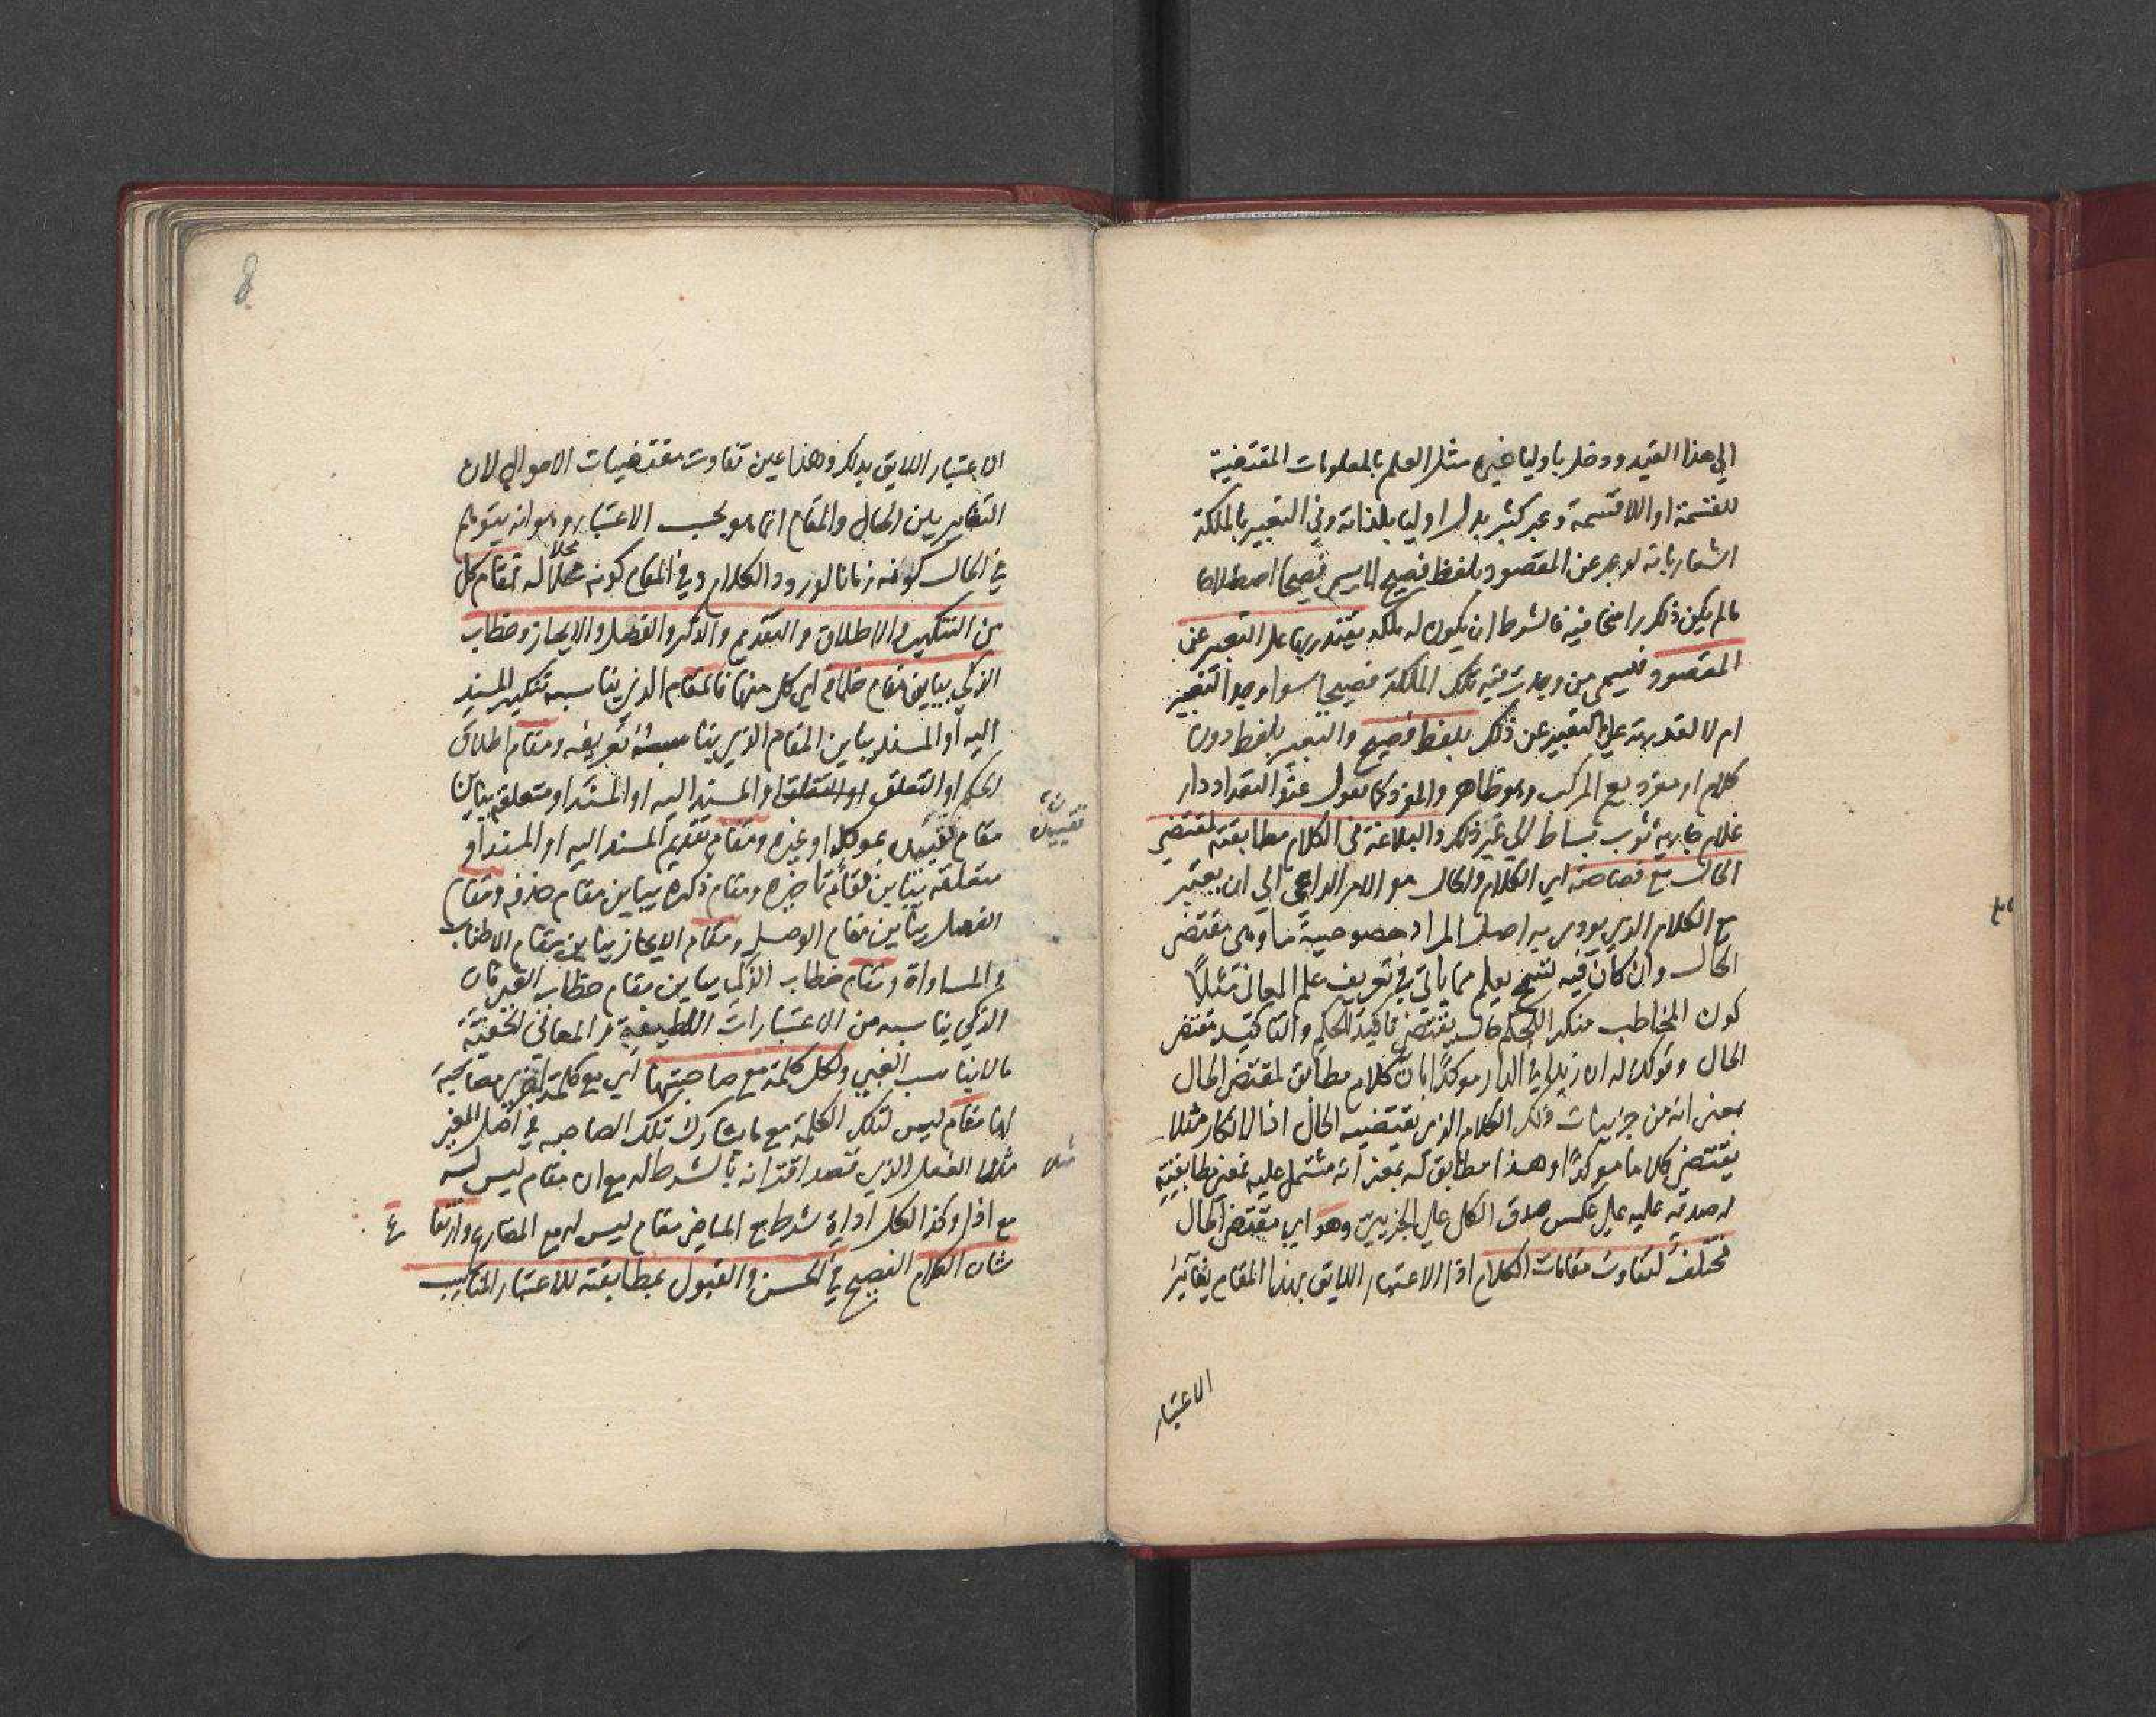 الي هذا القيد ودخل باوليا غيره مثل العلم بالمعلومات المقتضية
للقسمة او اللاقسمة وعبر كثير بدل اوليا بلذاته وفي التعبير بالملكة
اشعار بانه لو عبر عن المقصود بلفظ فصيح لا يسمي فصيحا اصطلاحا
مالم يكن ذلك راسخا فيه فالشرط ان يكون له ملكة يقتدر بها على التعبير عن
المقصود فيسمى من وجدت فيه تلك الملكة فصيحا سوا وجد التعبير
ام لا لقدرته علي التعبير عن ذلك بلفظ فصيح والتعبير بلفظ دون
كلام او مفرد يعم المركب وهو ظاهر والمفرد كما تقول عند التعداد دار
غلام جارية ثوب بساط الي غير ذلك والبلاغة في الكلام مطابقته لمقتضي
الحال مع فصاحته اي الكلام والحال هو الامر الداعي الي ان يعتبر
مع الكلام الذي يودي به اصل المراد خصوصية ما وهي مقتضى
الحال وان كان فيه تسمح يعلم مما ياتي في تعريف علم المعاني مثلًا
كون المخاطب منكرا للحكم حال يقتضي تاكيد الحكم والتاكيد مقتضى
الحال وقولك له ان زيدا في الدار موكدًا بان كلام مطابق لمقتضى الحال
بمعنى انه من جزييات ذلك الكلام الذي يقتضيه الحال اذ الانكار مثلا
يقتضي كلاما موكدًا وهذا مطابق له بمعنى انه مشتمل عليه بمعنى مطابقته
له صدقه عليه علي عكس صدق الكل علي الجزييات وهو اي مقتضى الحال
مختلف لتفاوت مقامات الكلام اذ الاعتبار اللايق بهذا المقام يغاير
الاعتبار
الاعتبار اللايق بذلك وهذا عين تفاوت مقتضيات الاحوال لان
التغاير بين الحال والمقام انما هو بحسب الاعتبار وهو انه يتوهم
في الحال كونه زمانا لورود الكلام وفي المقام كونه محلا له فمقام كل
من التنكير والاطلاق والتقديم والذكر والفصل والايجاز وخطاب
الذكي يباين مقام خلافه اي كل منها فالمقام الذي يناسبه تنكير المسند
اليه أو المسند يباين المقام الذي يناسبه تعريفه ومقام اطلاق
الحكم او التعلق او المسند اليه او المسند او متعلقه يباين
مقام تقييده بموكد او غيره ومقام تقديم المسند اليه او المسند او
تقييده
متعلقه يباين مقام تاخيره ومقام ذكره يباين مقام حذفه ومقام
الفصل يباين مقام الوصل ومقام الايجاز يباين مقام الاطناب
والمساواة ومقام خطاب الذكي يباين مقام خطاب الغبي فان
الذكي يناسبه من الاعتبارات اللطيفة والمعاني الخفية
مالا يناسب الغبي ولكل كلمة مع صاحبتها اي مع كلمة اخرى مصاحبة
لها مقام ليس لتلك الكلمة مع ما يشارك تلك الصاحبه في اصل المعنى
مثلا الفعل الذي قصد اقترانه بالشرط له مع ان مقام ليس له
مثلا
مع اذا وكذا لكل اداة شرط مع الماضي مقام ليس له مع المضارع وارتفا ع
شان الكلام الفصيح في الحسن والقبول بمطابقته للاعتبار المناسب
8